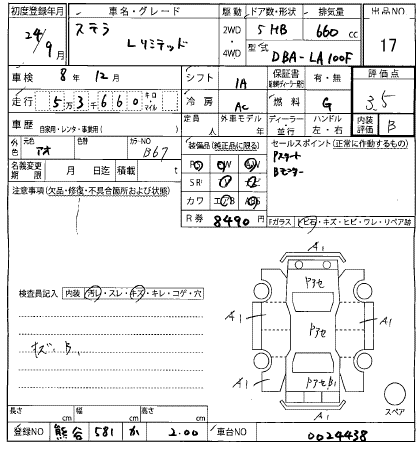 初度登録年月 車名・グレード 駆動 ドア数・形状 排気量 出品NO
24/9月 ステラ Lリミテッド 2WD・4WD 5 HB 660cc 17
型式 DBA-LA100F
車検 8年 12月 シフト IA 保証書 有・無 評価点
走行 5万3千660 キロ・マイル 冷房 AC 燃料 G 3.5
車歴 自家用・レンタ・事業用( ) 定員 人 外車モデル 年 ディーラー・並行 ハンドル 左・右 内装評価 B
外色 元色 アオ 色替 カラーNO B67 装備品(純正品に限る) セールスポイント(正常に作動するもの)
名義変更期限 月 日迄 積載 t Pスタート
Bモニター
注意事項(欠品・修復・不具合箇所および状態) SR
カワ
R券 8490円 Fガラス トビ石・キズ・ヒビ・ワレ・リペア跡
A1
検査員記入 内装 汚レ・スレ・キズ・キレ・コゲ・穴 Pアセ
A1 Pアセ A1
キズ B. A1 PアセB1
A1 スペア
長さ cm 幅 cm 高さ cm
登録NO 熊谷 581 か 2.00 車台NO 0024438